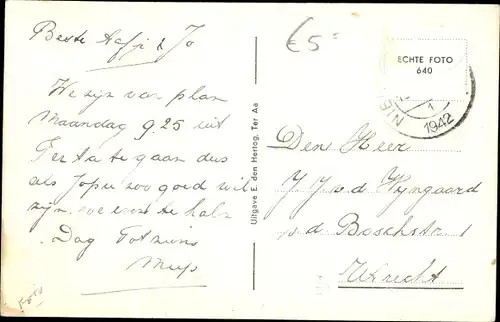 Beste Aafje & Jo
We zijn van plan
Maandag 9.25 uit
Ter Aa te gaan dus
als Jopie zoo goed wil
zijn, ons even te halen
Dag Tot ziens
Miep
€5=
Uitgave E. den Hertog, Ter Aa
ECHTE FOTO
640
NIE
1942
Den Heer
J. J. v. d. Wijngaard
v. d. Boschstr. 1
Utrecht